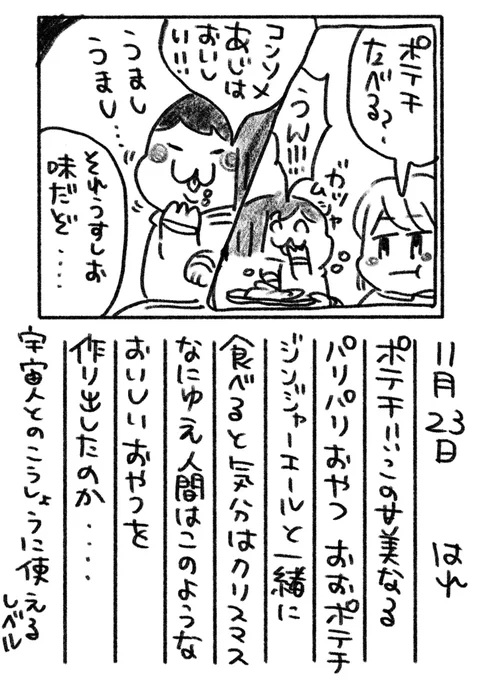 ポテチ
たべる?
うん!!!
ガツ
ムシャ
コンソメ
あじは
おいし
い!!!
うまし
うまし...
それうすしお
味だぞ....
11月23日 はれ
ポテチ!!この甘美なる
パリパリおやつ おおポテチ
ジンジャーエールと一緒に
食べると気分はクリスマス
なにゆえ人間はこのような
おいしいおやつを
作り出したのか....
宇宙人とのこうしょうに使える
レベル